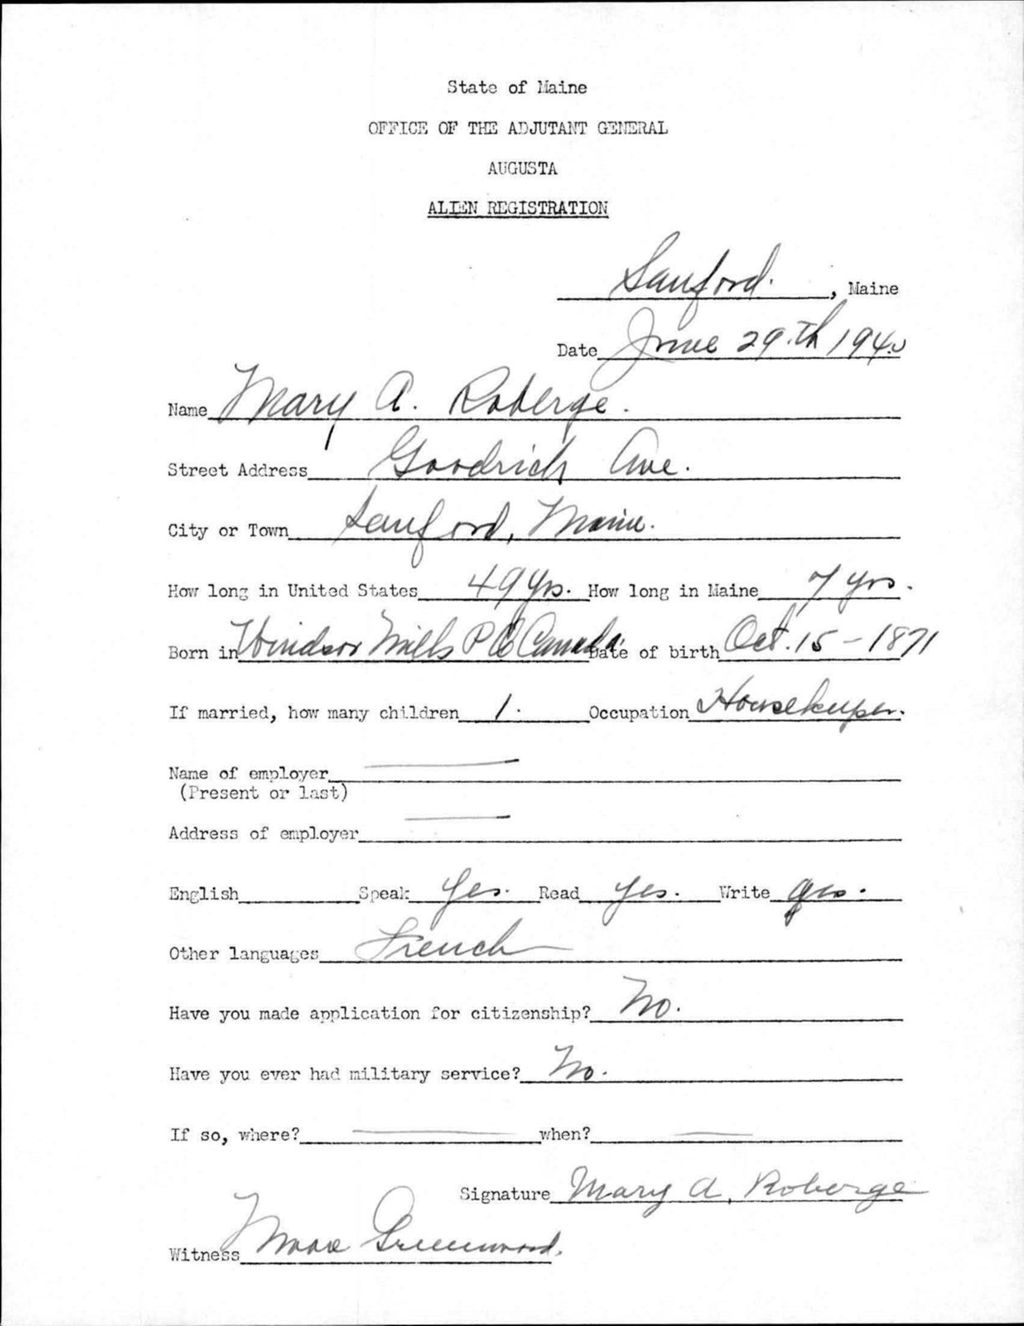 State of Maine
OFFICE OF THE ADJUTANT GENERAL
AUGUSTA
ALIEN REGISTRATION
Sanford. , Maine
Date June 29.th 1940
Name Mary A. Roberge.
Street Address Goodrich Ave.
City or Town Sanford, Maine.
How long in United States 49 yrs. How long in Maine 7 yrs.
Born in Windsor Mills P Q Canada. Date of birth Oct. 15 - 1871
If married, how many children 1. Occupation Housekeeper.
Name of employer
(Present or last)
Address of employer
English Speak Yes. Read Yes. Write yes.
Other languages French
Have you made application for citizenship? No.
Have you ever had military service? No.
If so, where? when?
Signature Mary A. Roberge
Witness Greenwood.